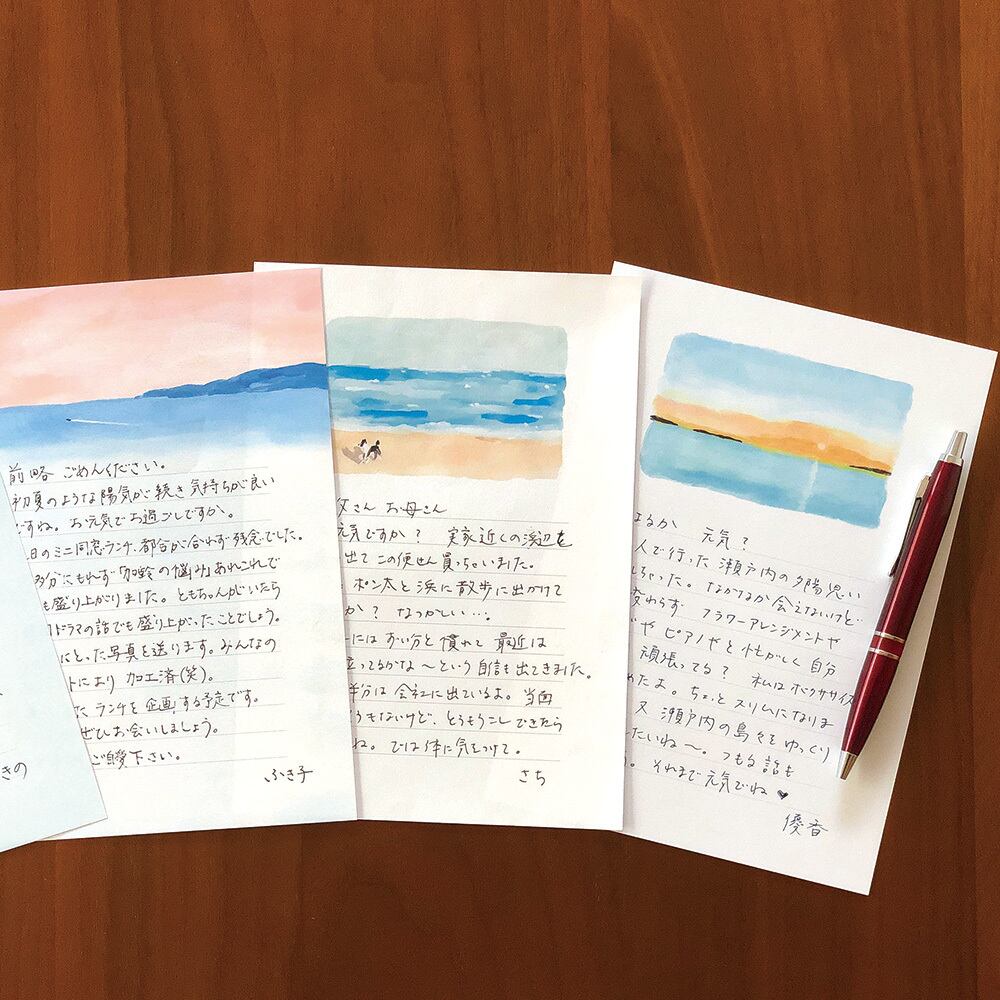 きの
前略 ごめんください。
初夏のような陽気が続き気持ちが良い
ですね。お元気でお過ごしですか。
日のミニ同窓ランチ、都合が合わず残念でした。
多分にもれず「加齢の悩み」あれこれで
も盛り上がりました。ともちゃんがいたら
ドラマの話でも盛り上がったことでしょう。
にとった写真を送ります。みんなの
トにより 加工済(笑)。
た ランチを企画する予定です。
ぜひお会いしましょう。
ご自愛下さい。
ふき子
父さん お母さん
元気ですか? 実家近くの浜辺を
出て この便せん買っちゃいました。
ポン太と浜に散歩に出かけて
か? なつかしい…。
ーにはずい分と慣れて 最近は
立ってるかな〜という自信も出てきました。
半分は会社に出ているよ。当面
うもないけど、とうもろこしできたら
ね。では体に気をつけて。
さち
はるか 元気?
人で行った 瀬戸内の夕陽思い
しちゃった。なかなか会えないけど…
変わらず フラワーアレンジメントや
や ピアノやと忙がしく 自分
頑張ってる? 私はボクササイズ
めたよ。ちょっとスリムになりま
又 瀬戸内の島々をゆっくり
したいね〜。つもる話も
。それまで元気でね♥
優香